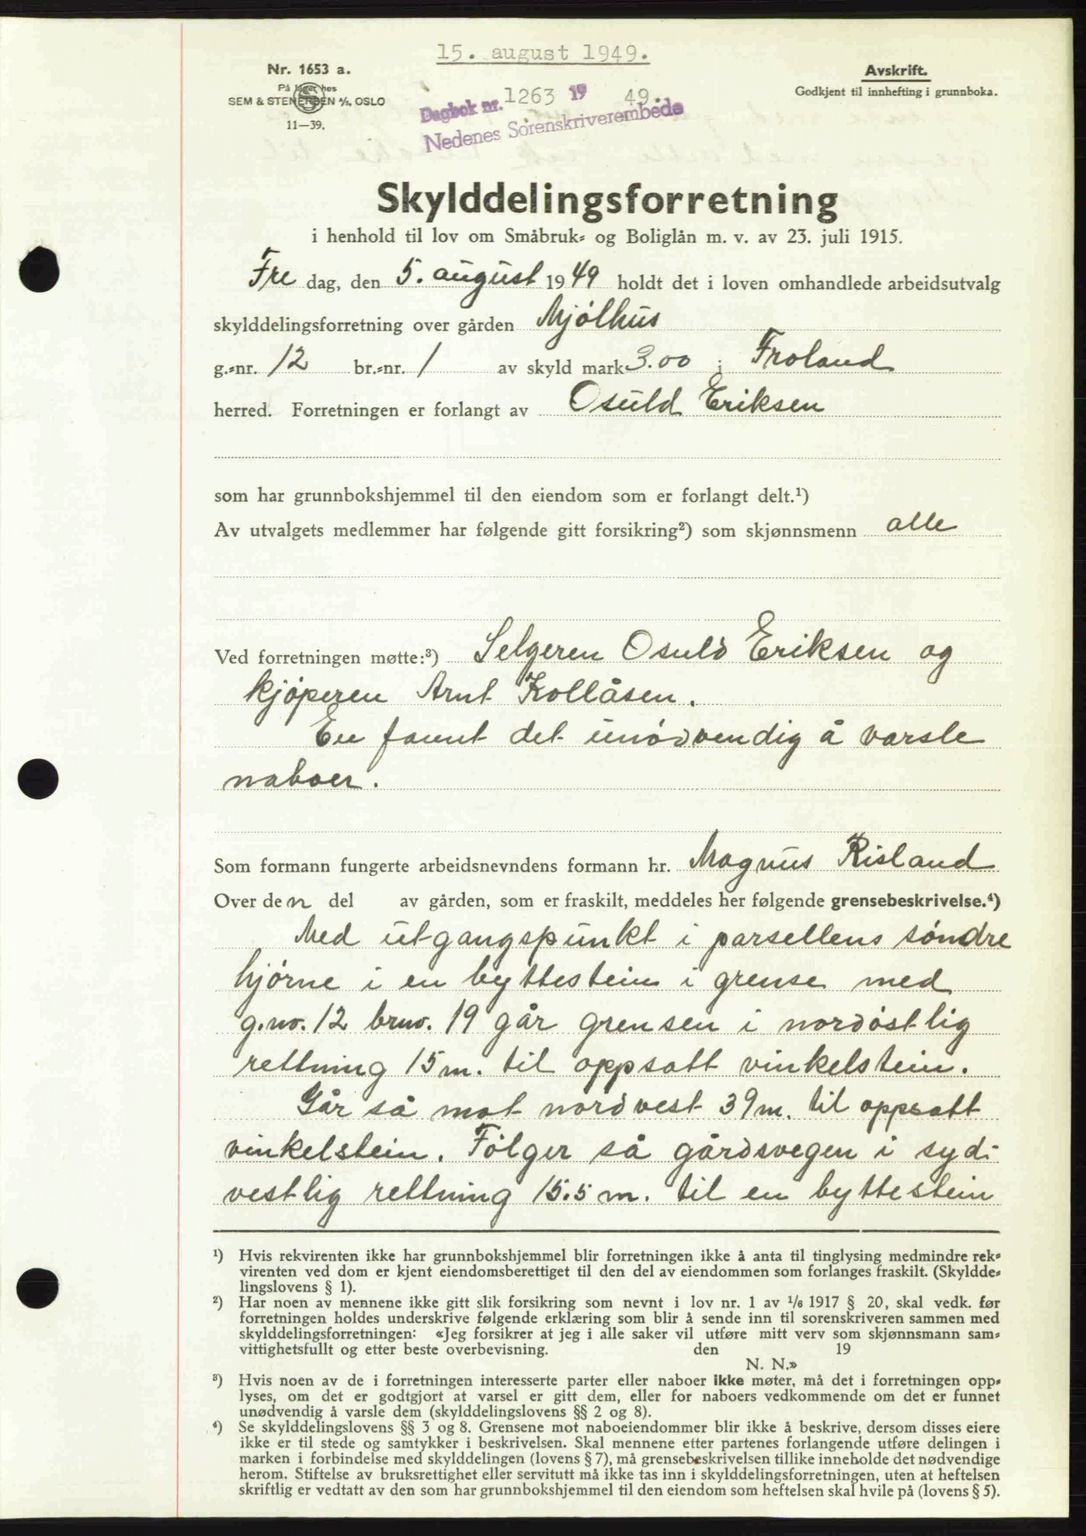 15. august 1949.
Nr. 1653 a.
På lager hos
SEM & STENERSEN A/S, OSLO
11—39.
Dagbok nr. 1263 19 49.
Nedenes Sorenskriverembede
Avskrift.
Godkjent til innhefting i grunnboka.
Skylddelingsforretning
i henhold til lov om Småbruk- og Boliglån m. v. av 23. juli 1915.
Fre dag, den 5. august 1949 holdt det i loven omhandlede arbeidsutvalg
skylddelingsforretning over gården Mjølhus
g.-nr. 12 br.-nr. 1 av skyld mark 3.00 i Froland
herred. Forretningen er forlangt av Osuld Eriksen
som har grunnbokshjemmel til den eiendom som er forlangt delt.¹)
Av utvalgets medlemmer har følgende gitt forsikring²) som skjønnsmenn alle
Ved forretningen møtte:³) Selgeren Osuld Eriksen og
kjøperen Arnt Kollåsen.
En fannt det unødvendig å varsle
naboer.
Som formann fungerte arbeidsnevndens formann hr. Magnus Risland
Over den del av gården, som er fraskilt, meddeles her følgende grensebeskrivelse.⁴)
Med utgangspunkt i parsellens søndre
hjørne i en byttestein i grense med
g.no. 12 brno. 19 går grensen i nordøstlig
rettning 15 m. til oppsatt vinkelstein.
Går så mot nordvest 39 m. til oppsatt
vinkelstein. Følger så gårdsvegen i syd-
vestlig rettning 15.5 m. til en byttestein
¹) Hvis rekvirenten ikke har grunnbokshjemmel blir forretningen ikke å anta til tinglysing medmindre rek-
virenten ved dom er kjent eiendomsberettiget til den del av eiendommen som forlanges fraskilt. (Skyldde-
lingslovens § 1).
²) Har noen av mennene ikke gitt slik forsikring som nevnt i lov nr. 1 av 1/6 1917 § 20, skal vedk. før
forretningen holdes underskrive følgende erklæring som blir å sende inn til sorenskriveren sammen med
skylddelingsforretningen: «Jeg forsikrer at jeg i alle saker vil utføre mitt verv som skjønnsmann sam-
vittighetsfullt og etter beste overbevisning. den 19
N. N.»
³) Hvis noen av de i forretningen interesserte parter eller naboer ikke møter, må det i forretningen opp-
lyses, om det er godtgjort at varsel er gitt dem, eller for naboers vedkommende om det er funnet
unødvendig å varsle dem (skylddelingslovens §§ 2 og 8).
⁴) Se skylddelingslovens §§ 3 og 8. Grensene mot naboeiendommer blir ikke å beskrive, dersom disses eiere
ikke er til stede og samtykker i beskrivelsen. Skal mennene etter partenes forlangende utføre delingen i
marken i forbindelse med skylddelingen (lovens § 7), må grensebeskrivelsen tillike inneholde det nødvendige
herom. Stiftelse av bruksrettighet eller servitutt må ikke tas inn i skylddelingsforretningen, uten at heftelsen
skriftlig er vedtatt av den som har grunnbokshjemmel til den eiendom som heftelsen skal hvile på (lovens § 5).